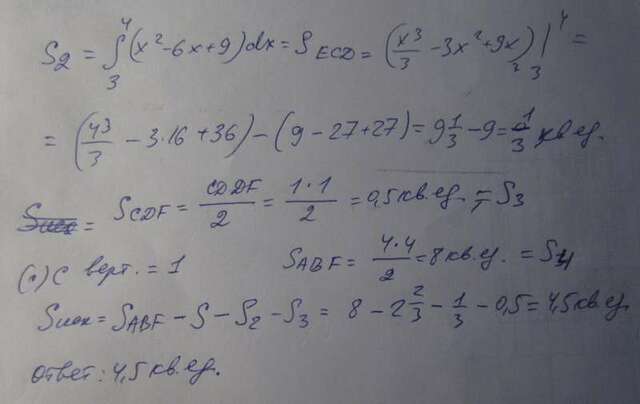 S₂ = ∫₃⁴ (x² - 6x + 9) dx = S ECD = (x³/3 - 3x² + 9x) |₃⁴ =
= (4³/3 - 3·16 + 36) - (9 - 27 + 27) = 9 1/3 - 9 = 1/3 кв.ед.
S CDF = CD DF/2 = 1·1/2 = 0,5 кв.ед. = S₃
(·) C верт. = 1 S ABF = 4·4/2 = 8 кв.ед. = S₄
Sиск = S ABF - S - S₂ - S₃ = 8 - 2 2/3 - 1/3 - 0,5 = 4,5 кв.ед.
Ответ: 4,5 кв.ед.